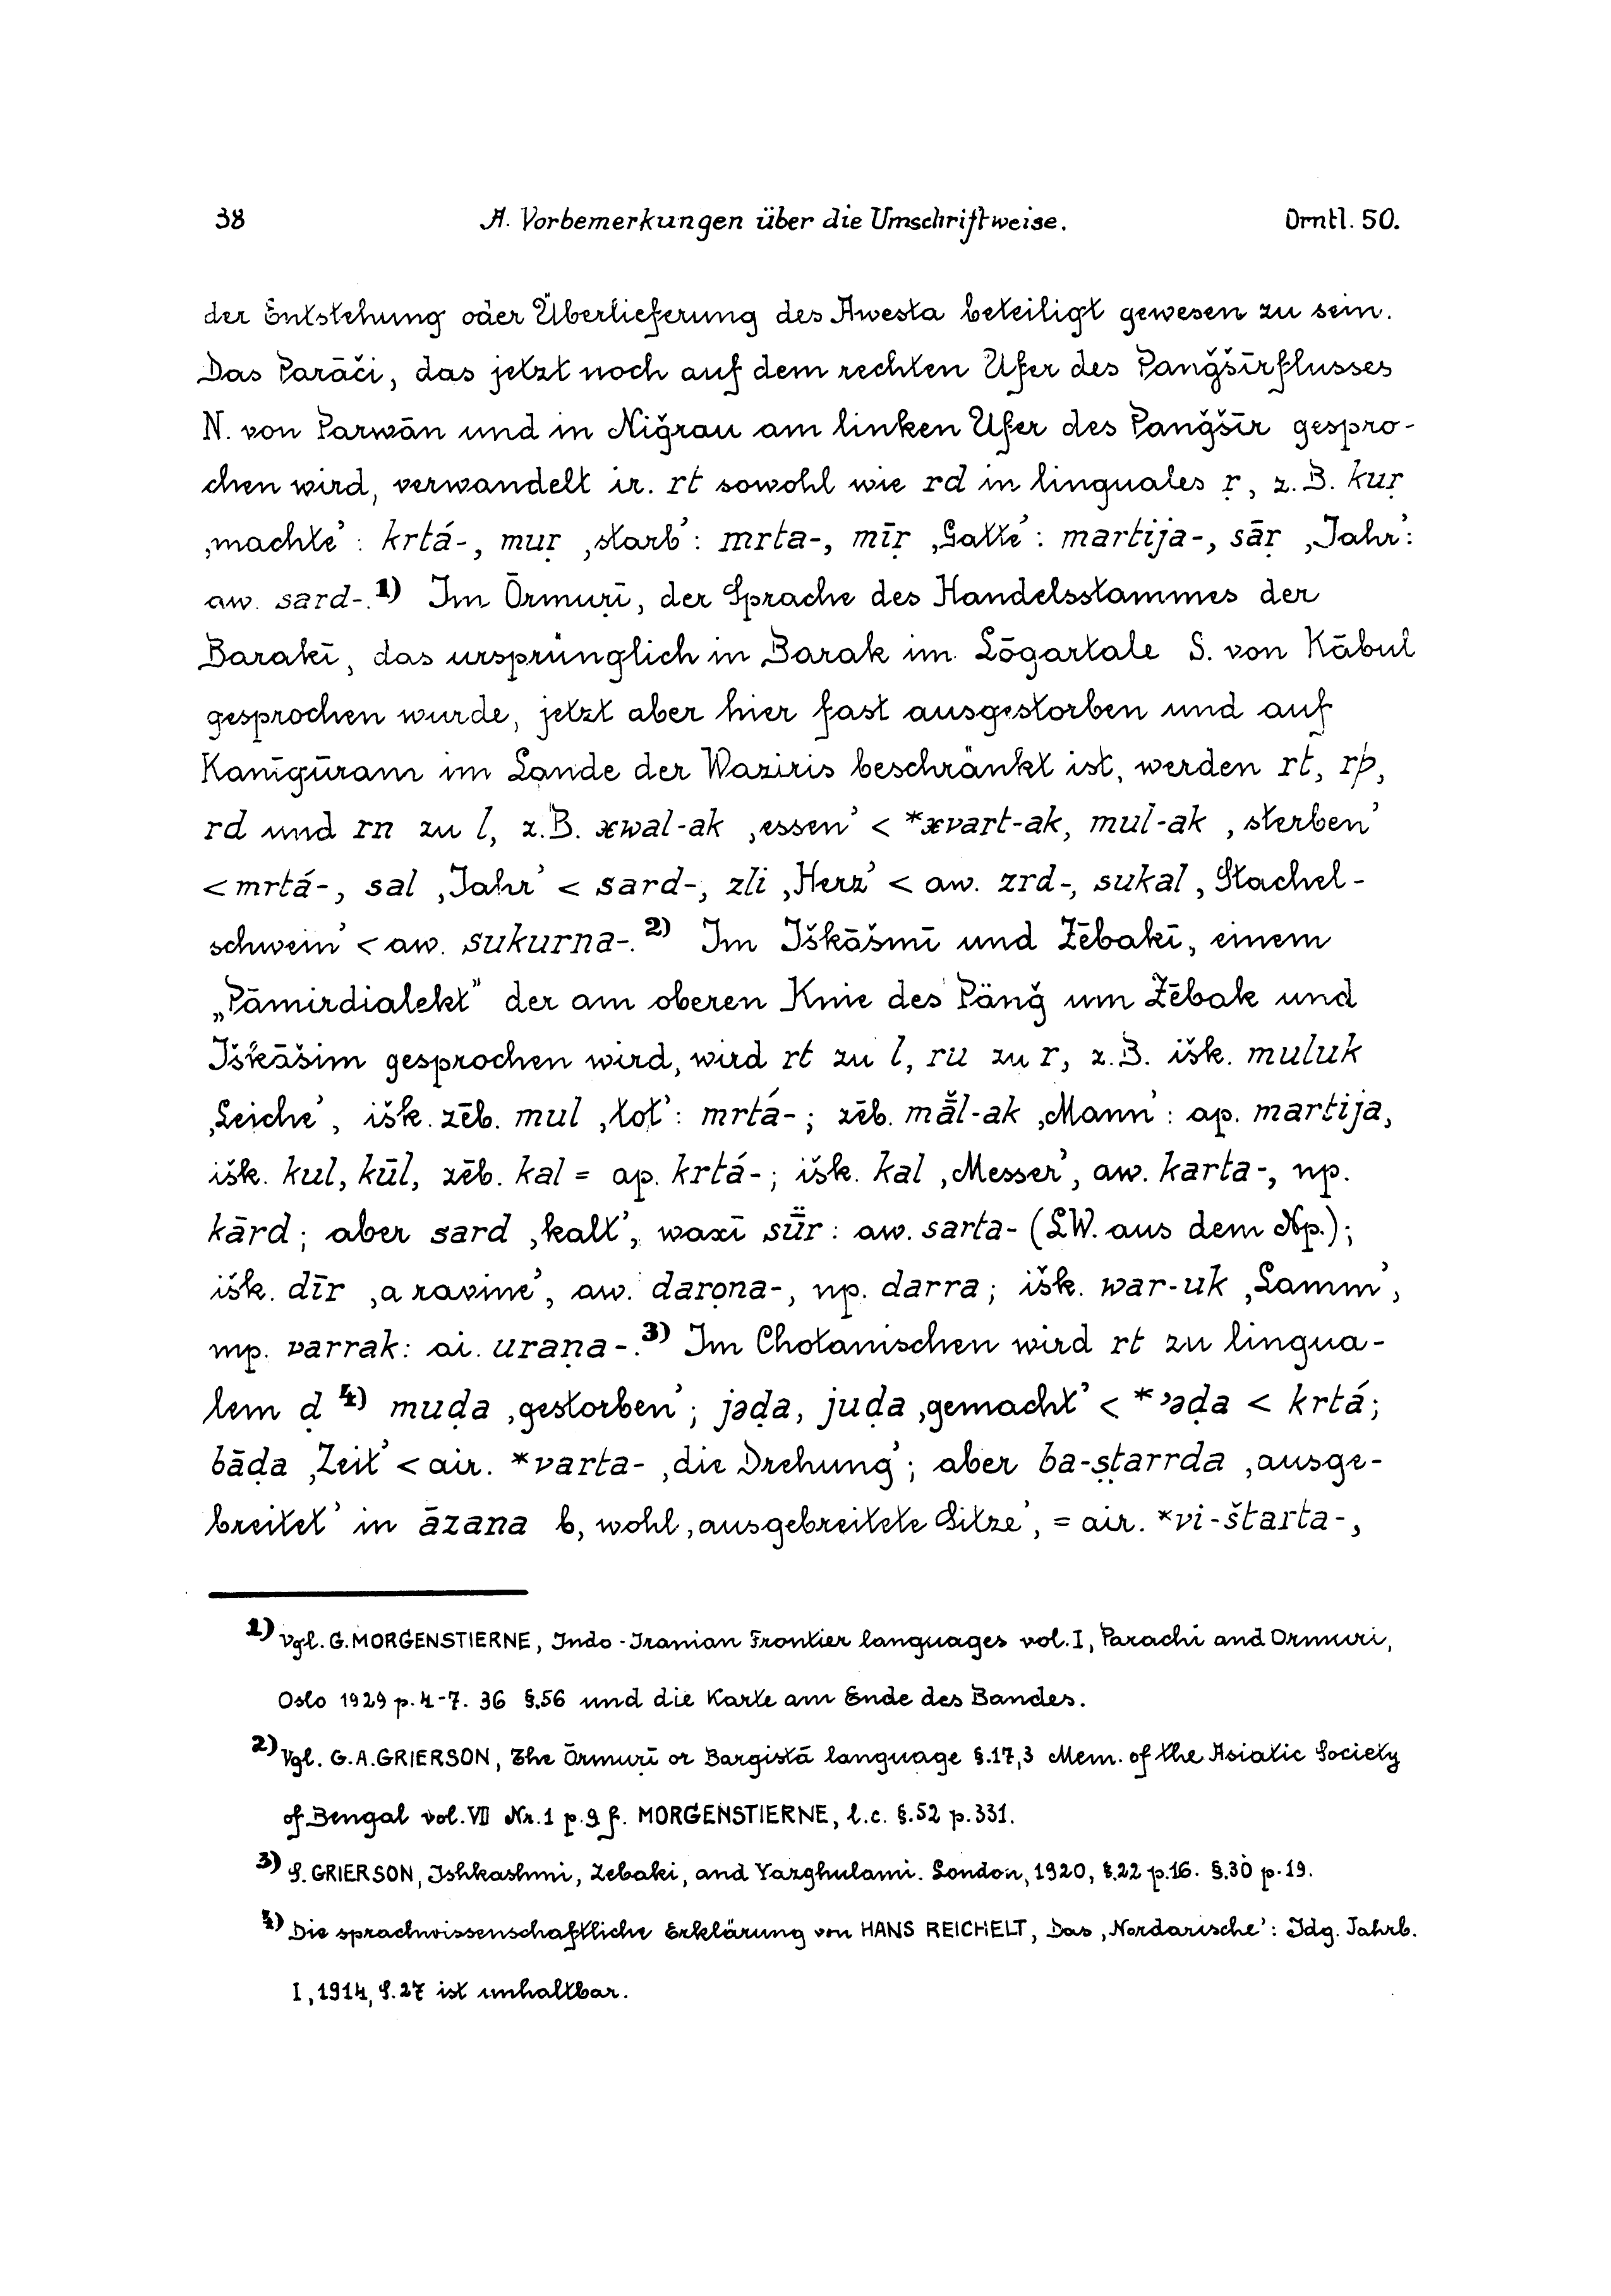 38 A. Vorbemerkungen über die Umschriftweise. Orntl. 50.
der Entstehung oder Überlieferung des Awesta beteiligt gewesen zu sein.
Das Parāči, das jetzt noch auf dem rechten Ufer des Panǧšīrflusses
N. von Parwān und in Niǧrau am linken Ufer des Panǧšīr gespro-
chen wird, verwandelt ir. rt sowohl wie rd in linguales ṛ, z.B. kuṛ
‚machte’: krtá-, muṛ ‚starb’: mrta-, mīṛ ‚Gatte’: martija-, sāṛ ‚Jahr’:
aw. sard-.1) Im Ōrmuṛī, der Sprache des Handelsstammes der
Barakī, das ursprünglich in Barak im Lōgartale S. von Kābul
gesprochen wurde, jetzt aber hier fast ausgestorben und auf
Kanīgūram im Lande der Waziris beschränkt ist, werden rt, rþ,
rd und rn zu l, z.B. xwal-ak ‚essen’ < *xvart-ak, mul-ak ‚sterben’
< mrtá-, sal ‚Jahr’ < sard-, zli ‚Herz’ < aw. zrd-, sukal ‚Stachel-
schwein’ < aw. sukurna-.2) Im Iškāšmī und Zēbakī, einem
„Pāmirdialekt“ der am oberen Knie des Pänǧ um Zēbak und
Iškāšim gesprochen wird, wird rt zu l, ru zu r, z.B. išk. muluk
‚Leiche’, išk. zēb. mul ‚tot’: mrtá-; zēb. māl-ak ‚Mann’: ap. martija,
išk. kul, kūl, zēb. kal = ap. krtá-; išk. kal ‚Messer’, aw. karta-, np.
kārd; aber sard ‚kalt’, waxī sǖr: aw. sarta- (LW. aus dem Np.);
išk. dīr ‚a ravine’, aw. darəna-, np. darra; išk. war-uk ‚Lamm’,
mp. varrak: ai. uraṇa-.3) Im Chotanischen wird rt zu lingua-
lem ḍ 4) muḍa ‚gestorben’; jəḍa, juḍa ‚gemacht’ < *’əḍa < krtá;
bāḍa ‚Zeit’ < air. *varta- ‚die Drehung’; aber ba-ṣṭarrda ‚ausge-
breitet’ in āzana b, wohl ‚ausgebreitete Sitze’, = air. *vi-štarta-,
1) Vgl. G. MORGENSTIERNE, Indo-Iranian Frontier languages vol. I, Parachi and Ormuri,
Oslo 1929 p. 4-7. 36 §.56 und die Karte am Ende des Bandes.
2) Vgl. G.A. GRIERSON, The Ōrmuṛī or Bargistā language §.17,3 Mem. of the Asiatic Society
of Bengal vol. VII Nr. 1 p. 9 f. MORGENSTIERNE, l.c. §.52 p. 331.
3) S. GRIERSON, Ishkashmi, Zebaki, and Yazghulami. London, 1920, §.22 p. 16. §.30 p. 19.
4) Die sprachwissenschaftliche Erklärung von HANS REICHELT, Das ‚Nordarische’: Idg. Jahrb.
I, 1914, S. 27 ist unhaltbar.